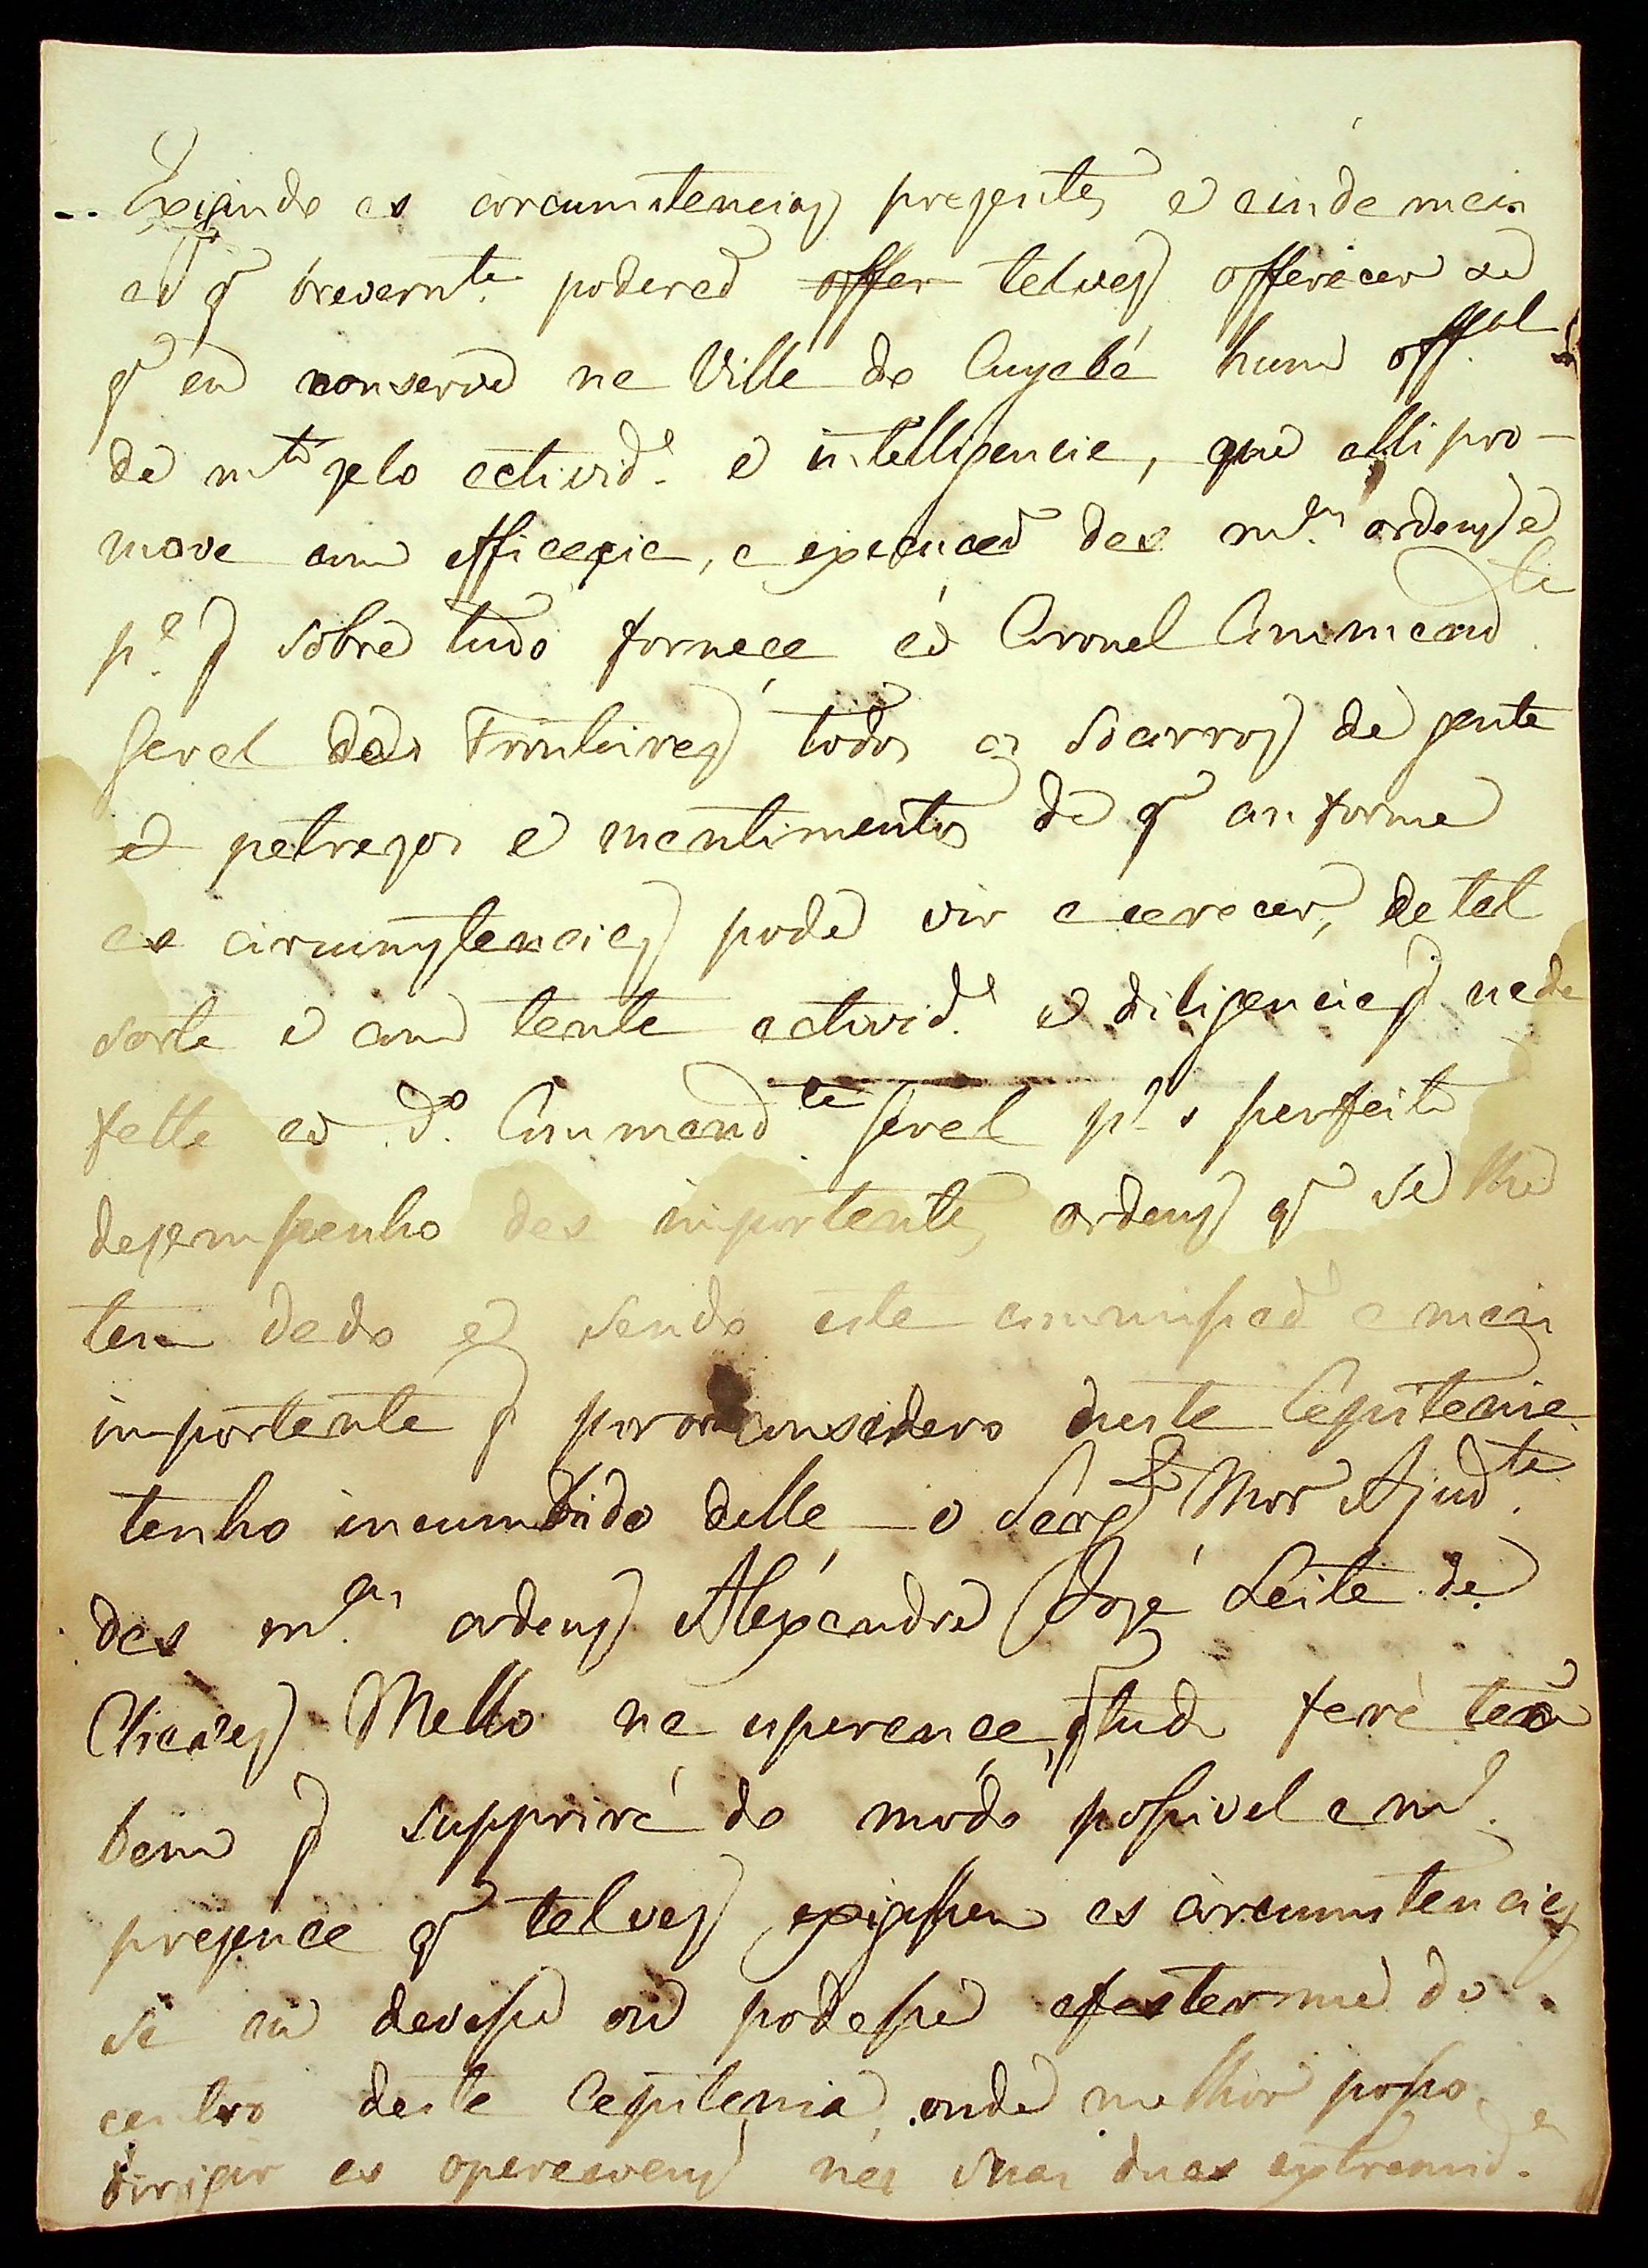 Exigindo as circumstencias prezentes e ainda mais
as q̃ brevem.te poderaõ offer talvez offerecer se
q̃ eu conserve na Villa do Cuyabá hum off.al
de m.to zelo activid.e e intelligencia, que alli pro-
mova com efficacia, a execuçaõ das m.as ordens e
p.a q̃ sobre tudo forneça ao Coronel Command.te
Geral das Fronteiras todos os socorros de gente
e petrexos e mantimentos de q̃ conforme
as circunstancias pode vir a carecer, de tal
sorte e com tanta activid.e e diligencia q̃ nada
falte ao d.o Command.te Geral p.a o perfeito
dezempenho das importantes ordens q̃ se lhe
tem dado e sendo esta commissaõ a mais
importante q̃ por ora considero desta Capitania
tenho incumbido della o Sarg.to Mor Ajud.te
das m.as ordens Alexandre José Leite de
Chaves Mello na esperança q̃ tudo fará taõ
bem q̃ supprirá do modo possivel a m.a
prezença q̃ talvez exigissem as circumstancias
se eu devesse ou podesse afastar me do
centro desta Capitania, onde melhor posso
dirigir as operaçoens nas suas duas extremid.es